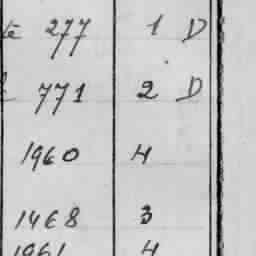 te 277 1 D
771 2 D
1960 4
1468 3
1961 4